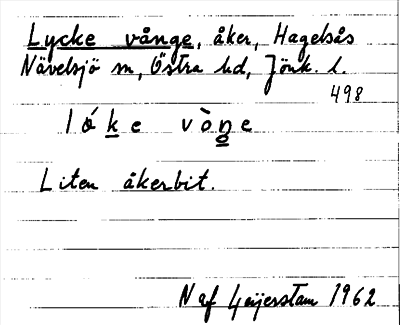 Lycke vånge, åker, Hagelsås
Nävelsjö sn, Östra hd, Jönk. l.
498
lóke vòŋe
Liten åkerbit.
N af Geijerstam 1962